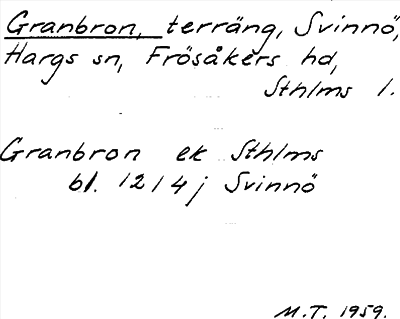 Granbron, terräng, Svinnö,
Hargs sn, Frösåkers hd,
Sthlms l.
Granbron ek Sthlms
bl. 1214j Svinnö
M.T. 1959.